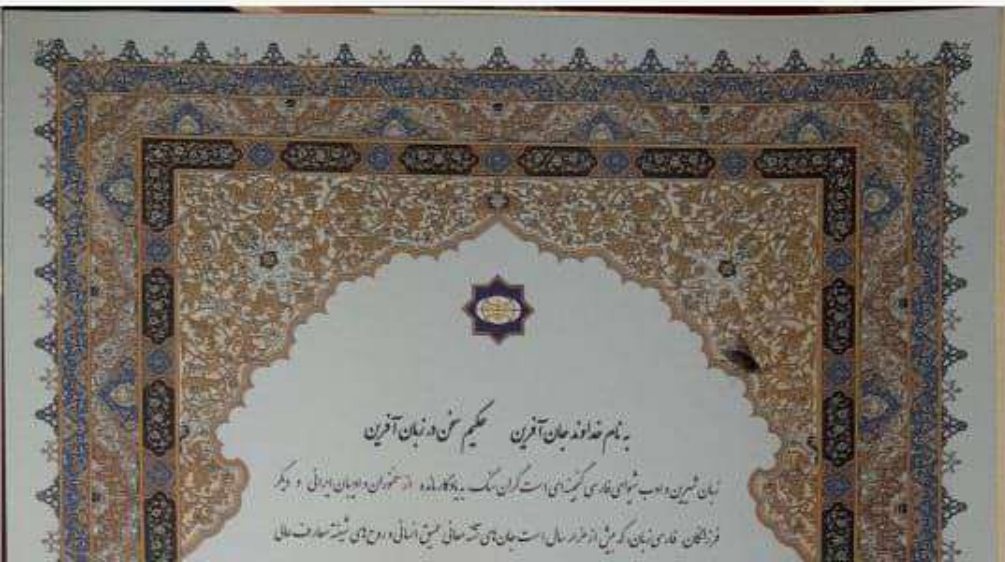 به نام خداوند جان آفرین حکیم سخن در زبان آفرین
زبان شیرین و ادب شیوای فارسی گنجینه‌ای است گران سنگ به یادگار مانده از سخنوران و ادیبان ایرانی و دیگر
فرزانگان فارسی زبان، که بیش از هزار سال است جان های تشنه معانی عمیق انسانی و روح های شیفته معارف عالی